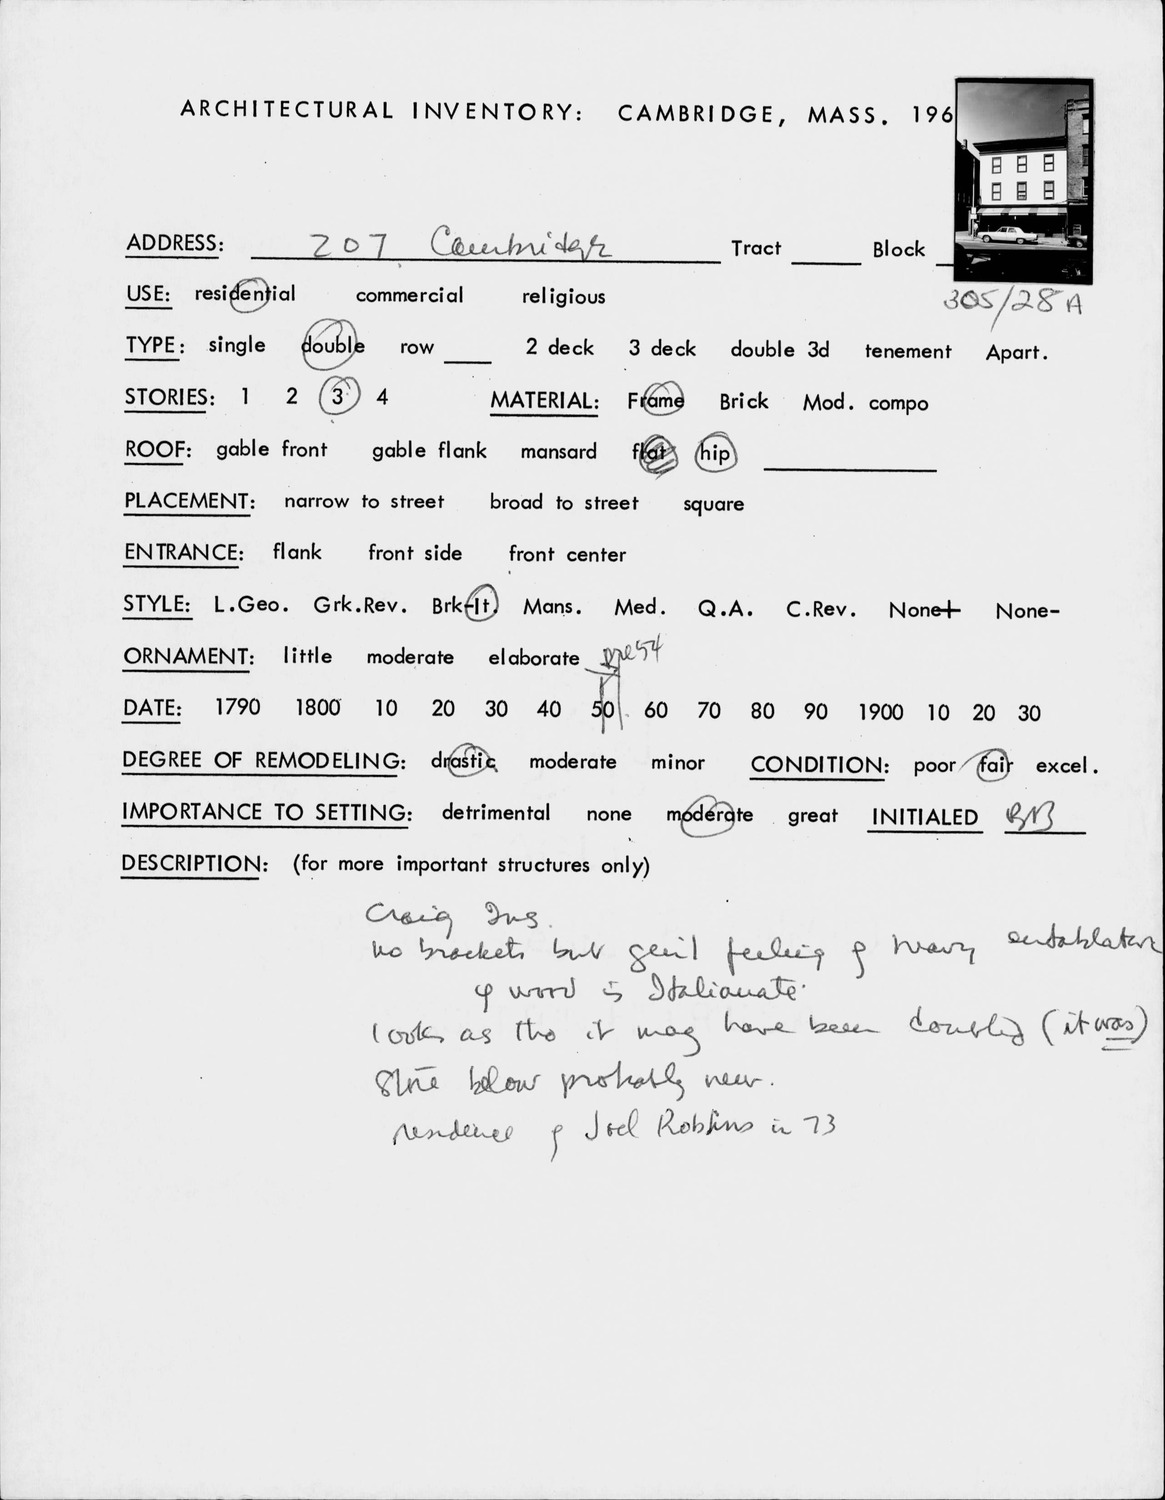 ARCHITECTURAL INVENTORY: CAMBRIDGE, MASS. 196
ADDRESS: 207 Cambridge Tract Block
305/28A
USE: residential commercial religious
TYPE: single double row 2 deck 3 deck double 3d tenement Apart.
STORIES: 1 2 3 4 MATERIAL: Frame Brick Mod. compo
ROOF: gable front gable flank mansard flat hip
PLACEMENT: narrow to street broad to street square
ENTRANCE: flank front side front center
STYLE: L.Geo. Grk.Rev. Brk-It. Mans. Med. Q.A. C.Rev. None+ None-
ORNAMENT: little moderate elaborate pre 54
DATE: 1790 1800 10 20 30 40 50 60 70 80 90 1900 10 20 30
DEGREE OF REMODELING: drastic moderate minor CONDITION: poor fair excel.
IMPORTANCE TO SETTING: detrimental none moderate great INITIALED
DESCRIPTION: (for more important structures only)
Craig
no brackets but gen'l feeling of heavy entablature
of wood is Italianate.
looks as tho it may have been doubled (it was)
Store below probably new.
residence of Joel Robbins in 73